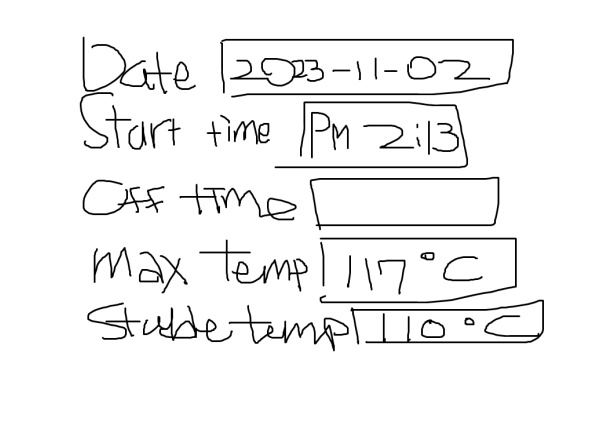 Date 2023-11-02
Start time PM 2:13
Off time
Max temp 117°C
Stable temp 110°C